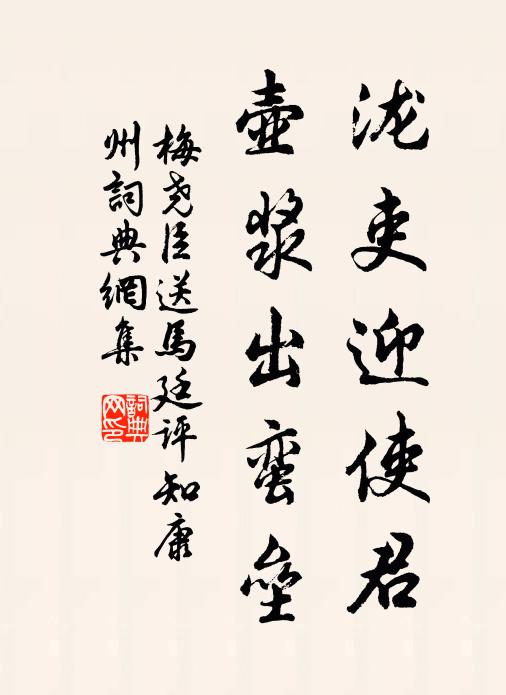 泷吏迎使君
壶浆出蛮垒
梅尧臣送馬廷评知康
州詞典網集
詞典
网印